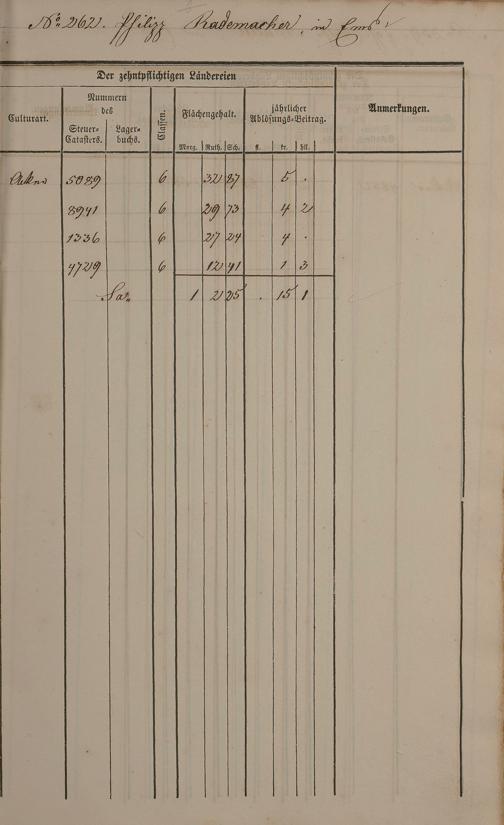 No. 262. Philipp Rademacher, in Ems.
Der zehntpflichtigen Ländereien
Culturart.
Nummern
des
Steuer-
Catasters.
Lager-
buchs.
Classen.
Flächengehalt.
Morg. Ruth. Sch.
jährlicher
Ablösungs-Beitrag.
fl. kr. hll.
Anmerkungen.
5089 6 32 87 5 .
8941 6 29 73 4 2
1336 6 27 24 4 .
4729 6 12 41 1 3
Sa. 1 2 25 . 15 1